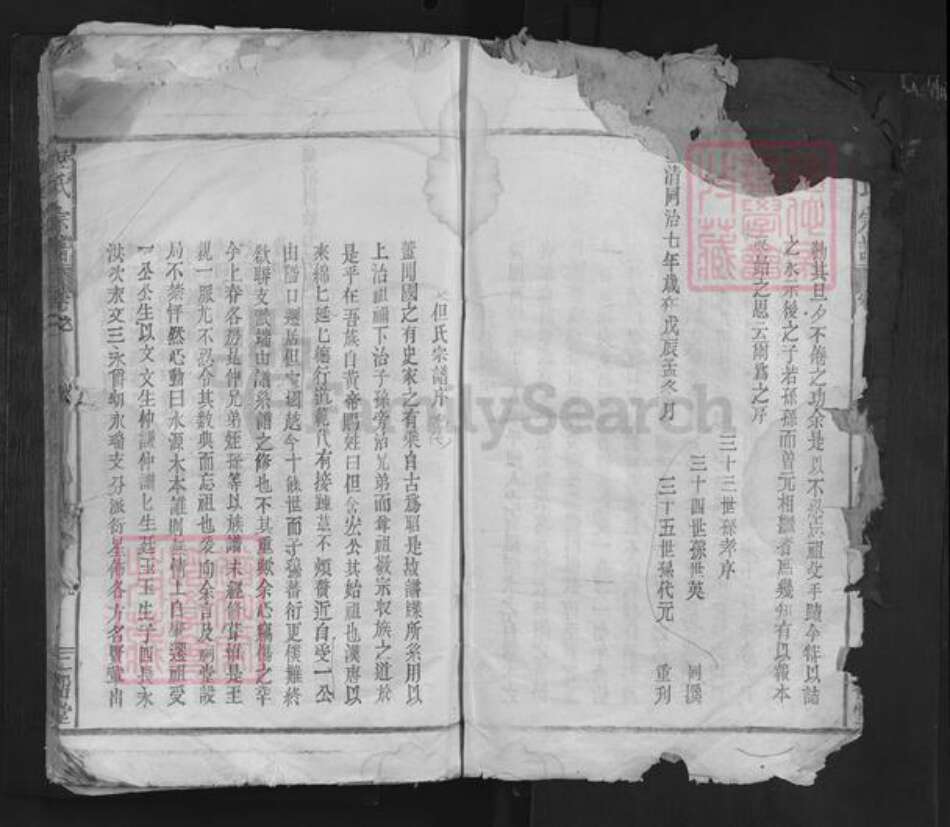 勑其旦夕不倦之功余是以不忍忘祖父手蹟今特以誌
之永示後之子若孫孫而曾元相繼者庶幾知有以報本
始之思云爾爲之序
三十三世孫孝序
三十四世孫世英 同譔
三十五世孫代元 重刋
清同治七年歲在戊辰孟冬月
但氏宗譜序
蓋聞國之有史家之有乘自古爲昭是故譜牒所系用以
上治祖禰下治子孫旁治兄弟而尊祖敬宗收族之道於
是乎在吾族自黄帝賜姓曰但宏公其始祖也漢唐以
來綿匕延匕德行道範代有接踵葢不煩贅近自受一公
由 口遷居但 迄今十餘世而子孫蕃衍更僕難終
欲聯支 端由譜系譜之修也不其重歟余心竊傷之辛
今上春各房昆仲兄弟姪孫等以族譜未經修葺 是王
親一脈尤不忍令其数典而忘祖也爰向余言及祠堂設
局不禁怦然心動曰水源木本誰則無情上自 遷祖受
一公公生以文文生仲謙仲謙匕生廷玉玉生子四長永
洪次永文三永 四永瑞支分派衍星佈各方名賢輩出
氏宗譜 卷之